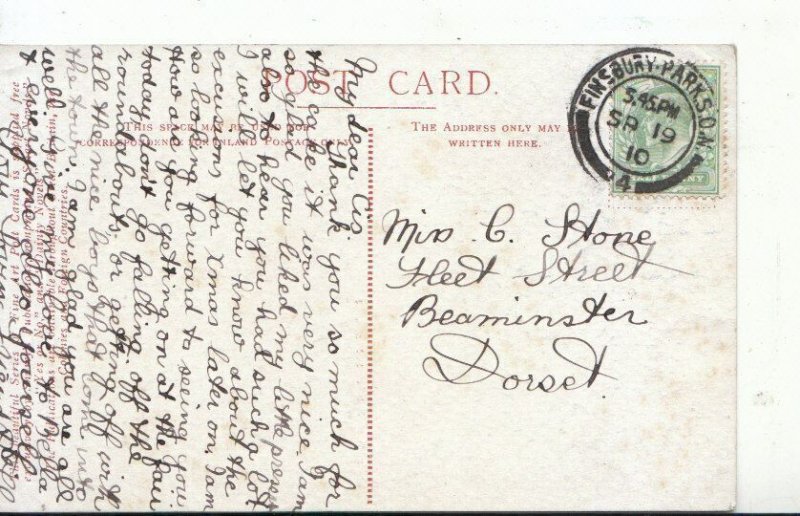 POST CARD.
THIS SPACE MAY BE USED FOR
CORRESPONDENCE FOR INLAND POSTAGE ONLY.
THE ADDRESS ONLY MAY BE
WRITTEN HERE.
FINSBURY PARK S.O.N.
5.45 PM
SP 19
10
4
Miss C. Stone
Fleet Street
Beaminster
Dorset.
My dear Cis.
Thank you so much for
the cake it was very nice. I am
so glad you liked my little present
also to hear you had such a lot
I will let you know about the
excursions for xmas later on. I am
so looking forward to seeing you.
How are you getting on at the fair
today don't go falling off the
roundabouts, or getting off with
all the nice boys that come into
the town. I am glad you are all
well